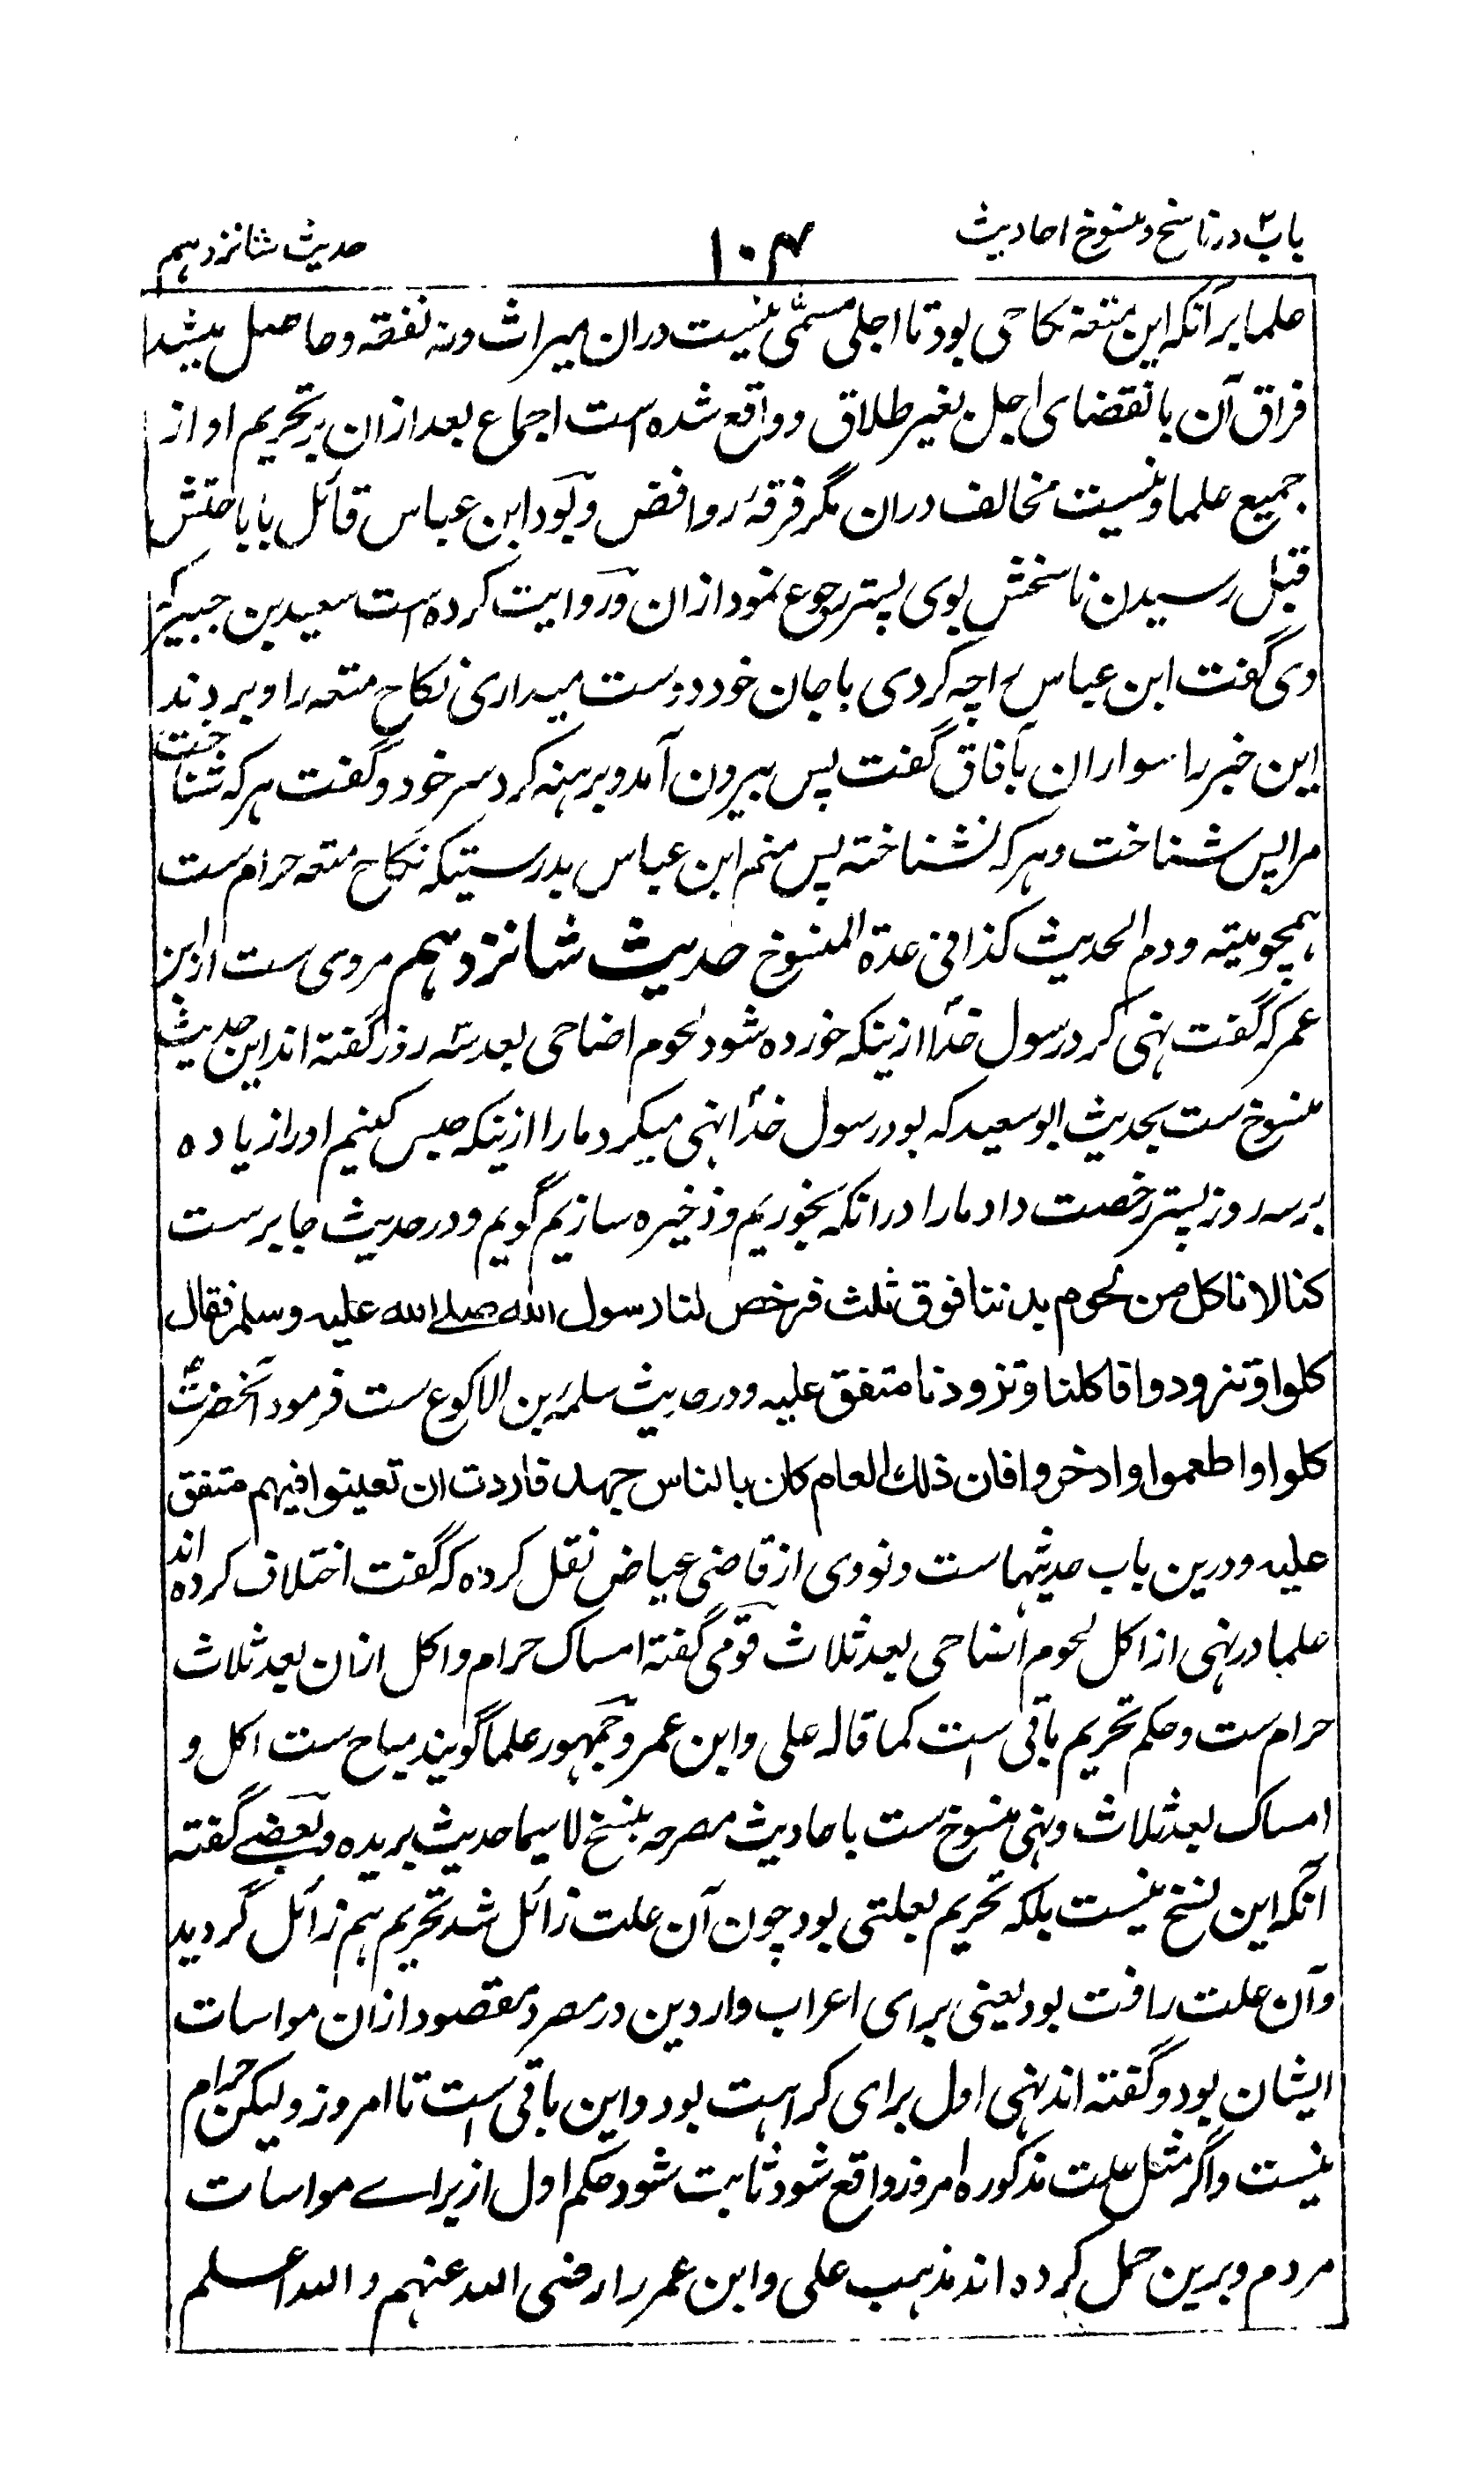 باب۲ در ناسخ و منسوخ احادیث
۱۰۴
حدیث شانزدهم
علما بر آنکه این متعه نکاحی بود تا اجلی مسمّی نیست دران میراث و نه نفقه و حاصل میشد
فراق آن بانقضای اجل بغیر طلاق و واقع شده است اجماع بعد ازان بر تحریم او از
جمیع علما و نیست مخالف دران مگر فرقهٔ روافض و بود ابن عباس قائل باباحتش
قبل رسیدن ناسخش بوی پستر رجوع نمود ازان و روایت کرده است سعید بن جبیر که
وی گفت ابن عباس را چه کردی با جان خود دوست میداری نکاح متعه را و بردند
این خبر را سواران بآفاق گفت پس بیرون آمد و برهنه کرد سر خود و گفت هر که شناخت
مرا پس شناخت و هر که نشناخته پس منم ابن عباس بدرستیکه نکاح متعه حرام ست
همچو میته و دم الحدیث کذا فی عدة المنسوخ حدیث شانزدهم مروی ست از ابن
عمر که گفت نهی کرد رسول خداؐ ازینکه خورده شود لحوم اضاحی بعد سه روز گفته اند این حدیث
منسوخ ست بحدیث ابو سعید که بود رسول خداؐ نهی میکرد ما را ازینکه حبس کنیم او را زیاده
بر سه روز پستر رخصت داد ما را در انکه بخوریم و ذخیره سازیم گویم و در حدیث جابر ست
کنا لا ناکل من لحوم بدننا فوق ثلث فرخص لنا رسول الله صلے الله علیه وسلم فقال
کلوا و تزودوا فاکلنا و تزودنا متفق علیه و در حدیث سلمه بن الاکوع ست فرمود آنحضرتؐ
کلوا واطعموا وادخروا فان ذلك العام کان بالناس جهد فاردت ان تعینوا فیهم متفق
علیه و درین باب حدیثهاست و نووی از قاضی عیاض نقل کرده که گفت اختلاف کرده اند
علما در نهی از اکل لحوم اضاحی بعد ثلاث قومی گفته امساک حرام و اکل ازان بعد ثلاث
حرام ست و حکم تحریم باقی است کما قاله علی و ابن عمر و جمهور علما گویند مباح ست اکل و
امساک بعد ثلاث و نهی منسوخ ست باحادیث مصرحه بنسخ لا سیما حدیث بریده و بعضے گفته
آنکه این نسخ نیست بلکه تحریم بعلتی بود چون آن علت زائل شد تحریم هم زائل گردید
و آن علت رافت بود یعنی برای اعراب واردین در مصر و مقصود ازان مواسات
ایشان بود و گفته اند نهی اول برای کراهت بود و این باقی است تا امروز ولیکن حرام
نیست و اگر مثل علت مذکوره امروز واقع شود ثابت شود حکم اول از براے مواسات
مردم و برین حمل کرده اند مذهب علی و ابن عمر را رضی الله عنهم والله اعلم